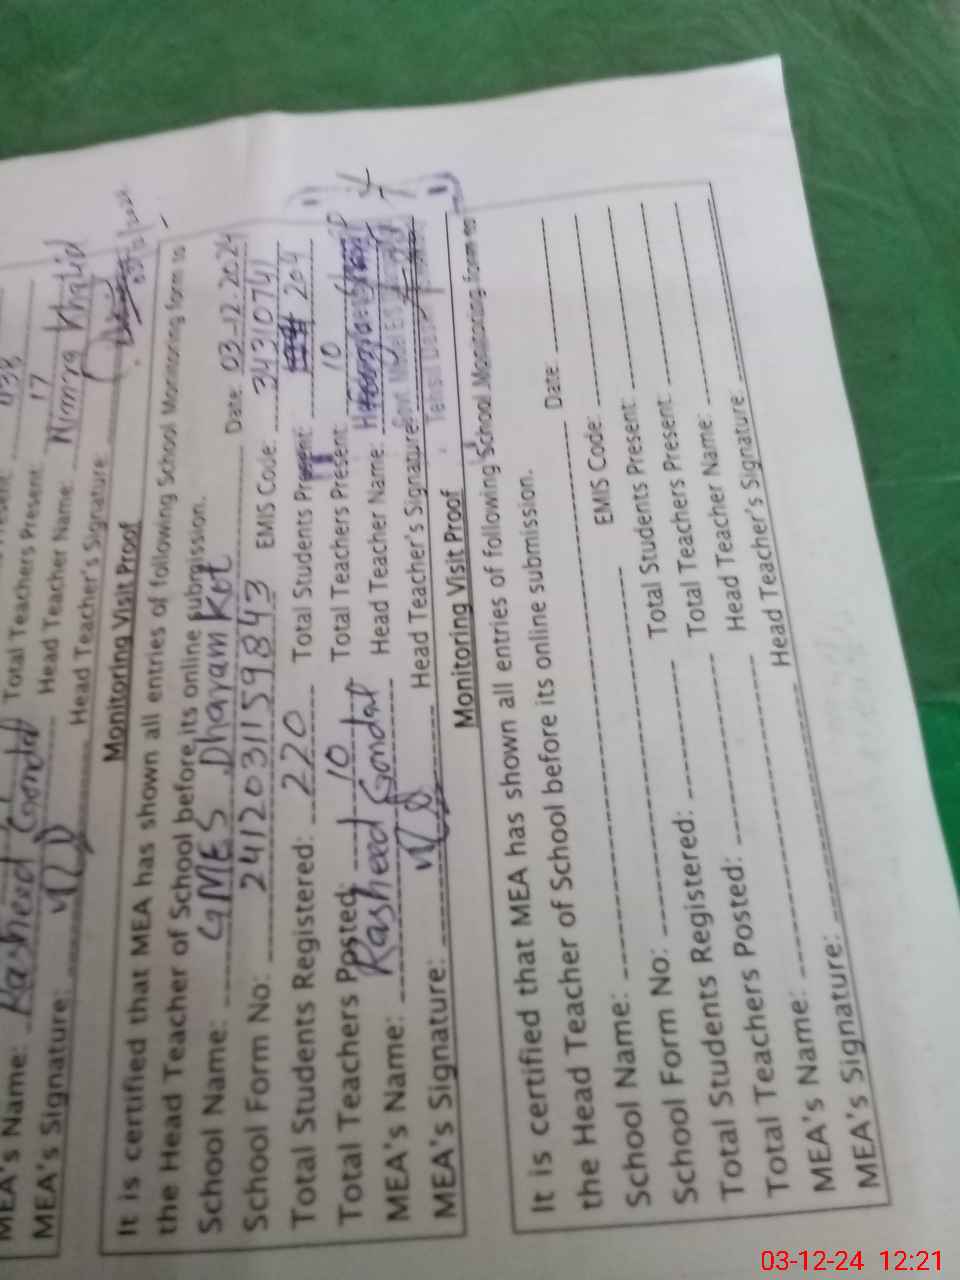 Total Teachers Present 17
MEA's Name: Rasheed Gondal Head Teacher Name: Nimra Khalid
MEA's Signature: Head Teacher's Signature
Monitoring Visit Proof
It is certified that MEA has shown all entries of following School Monitoring form to
the Head Teacher of School before its online submission.
School Name: GMES Dharam Kot Date: 03-12-2024
School Form No: 241203115984 3 EMIS Code: 34310741
Total Students Registered: 220 Total Students Present: 204
Total Teachers Posted: 10 Total Teachers Present: 10
MEA's Name: Rasheed Gondal Head Teacher Name:
MEA's Signature: Head Teacher's Signature:
Monitoring Visit Proof
It is certified that MEA has shown all entries of following School Monitoring form to
the Head Teacher of School before its online submission.
School Name: Date:
School Form No: EMIS Code:
Total Students Registered: Total Students Present:
Total Teachers Posted: Total Teachers Present:
MEA's Name: Head Teacher Name:
MEA's Signature: Head Teacher's Signature:
03-12-24 12:21